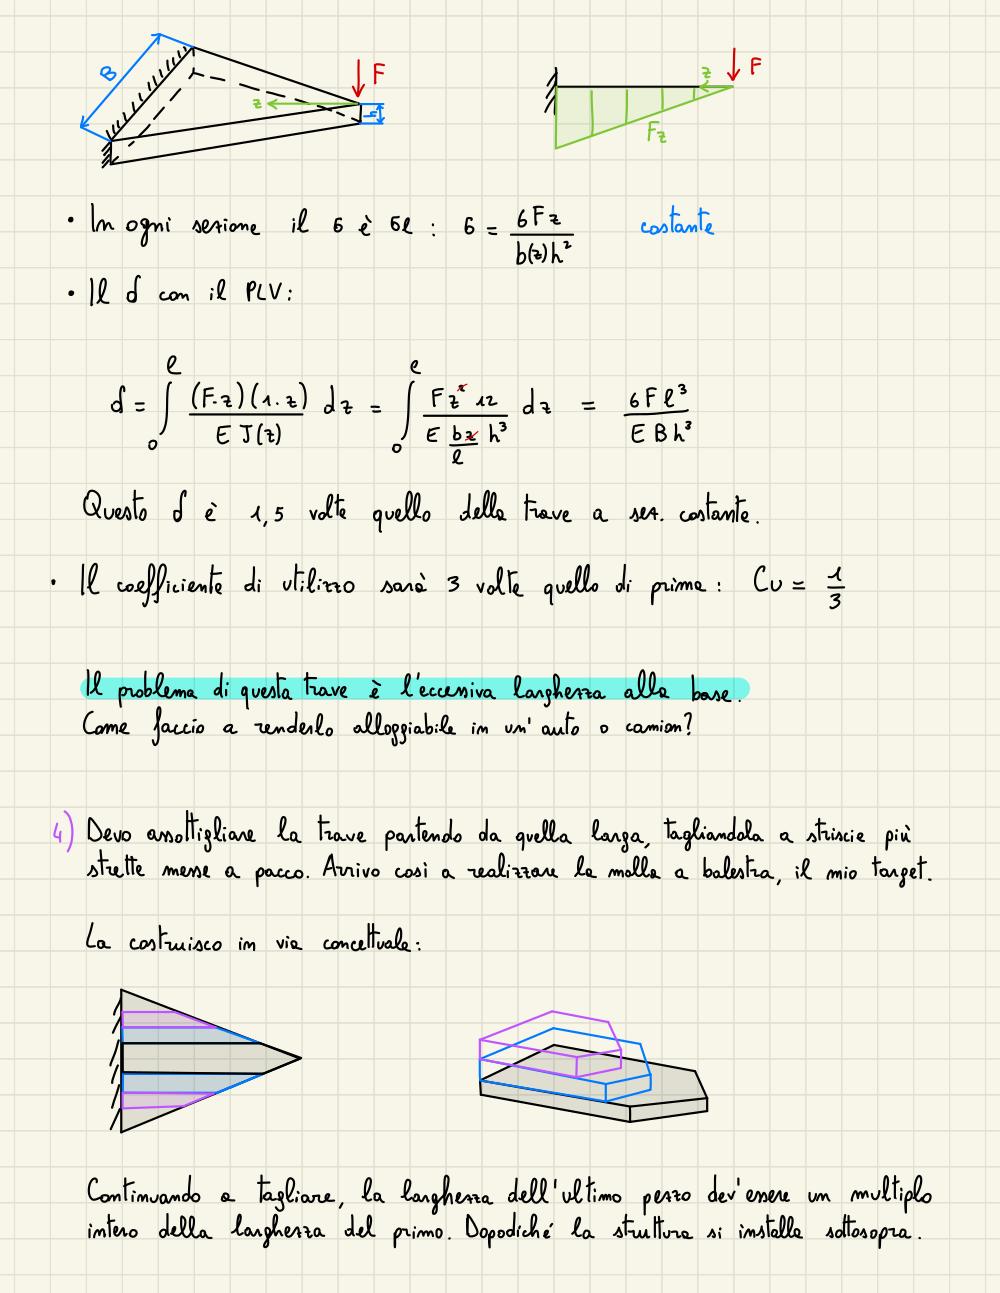 B
F
z
h
z
F
Fz
• In ogni sezione il σ è σe : σ = 6Fz / b(z)h² costante
• Il δ con il PLV:
δ = ∫₀ˡ (F·z)(1·z) / E J(z) dz = ∫₀ˡ F z² 12 / E (bz/l) h³ dz = 6Fl³ / E B h³
Questo δ è 1,5 volte quello della trave a sez. costante.
• Il coefficiente di utilizzo sarà 3 volte quello di prima : Cu = 1/3
Il problema di questa trave è l'eccessiva larghezza alla base.
Come faccio a renderlo alloggiabile in un' auto o camion?
4) Devo assottigliare la trave partendo da quella larga, tagliandola a striscie più
strette messe a pacco. Arrivo così a realizzare la molla a balestra, il mio target.
La costruisco in via concettuale:
Continuando a tagliare, la larghezza dell'ultimo pezzo dev'essere un multiplo
intero della larghezza del primo. Dopodiché la struttura si installa sottosopra.